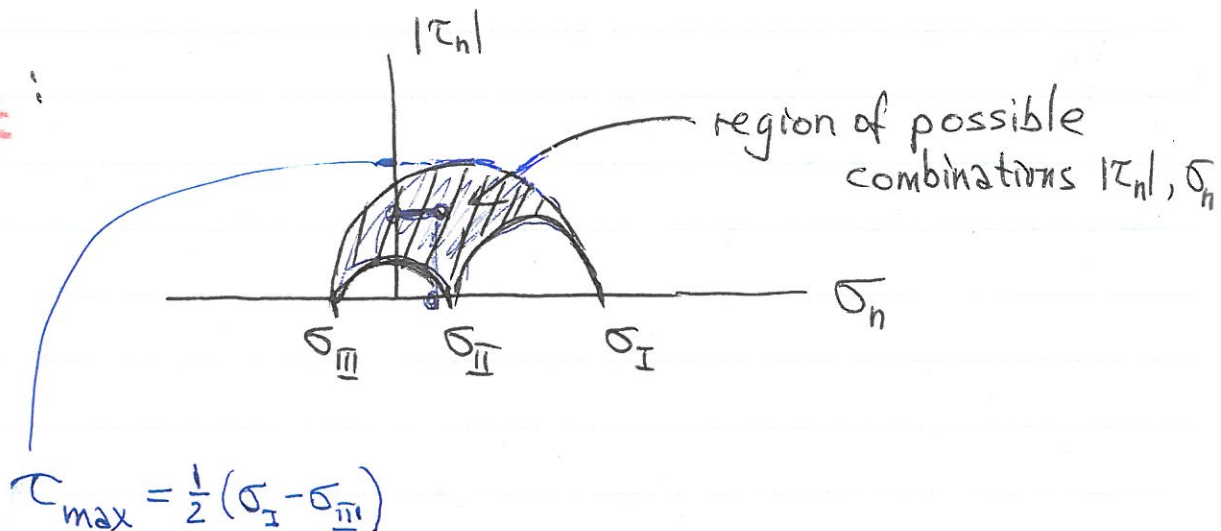 |τₙ|
:
region of possible
combinations |τₙ|, σₙ
σₙ
σ_III σ_II σ_I
τ_max = ½ (σ_I - σ_III)